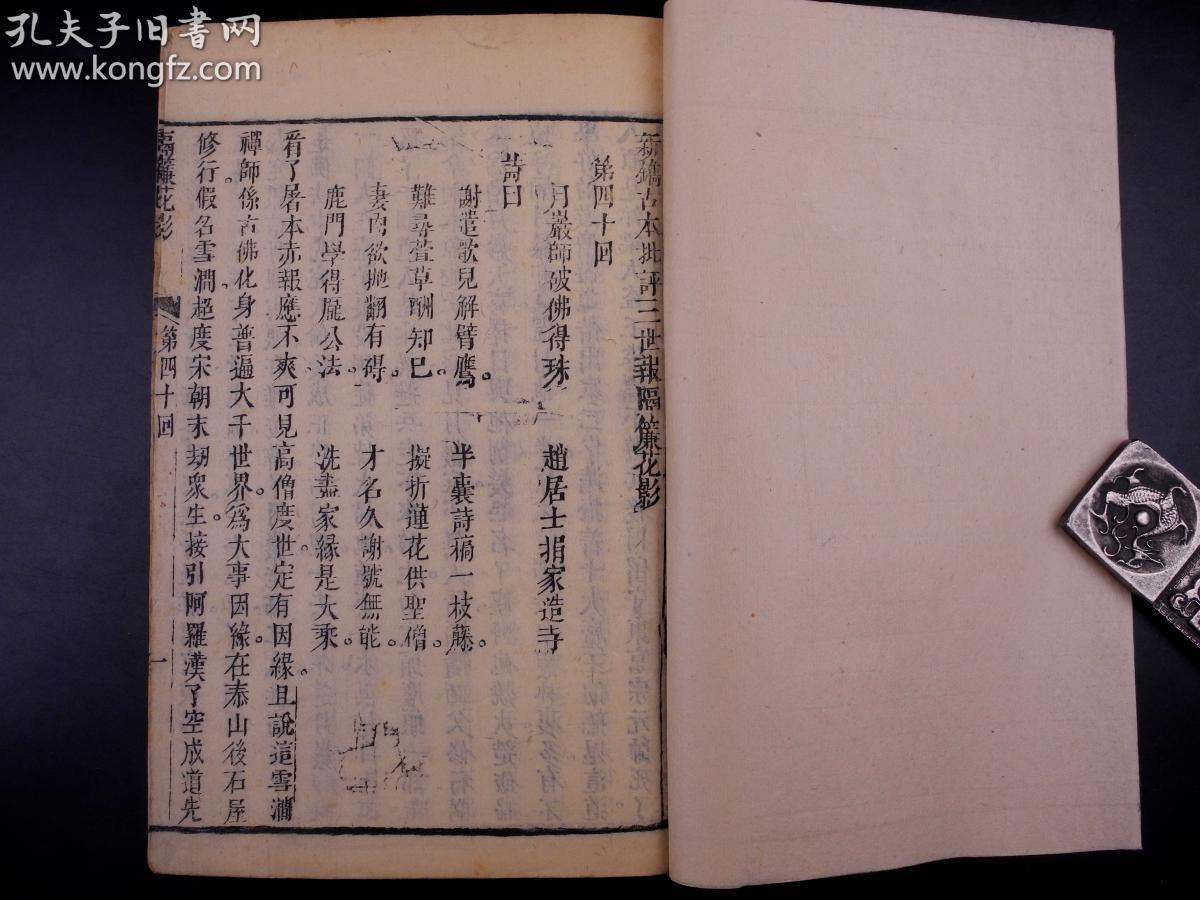 孔夫子旧书网
www.kongfz.com
新鐫古本批評三世報隔簾花影
第四十回
月巖師破佛得珠 趙居士捐家造寺
詩曰
謝遣歌兒解臂鷹。半囊詩稿一枝藤。
難尋萱草酬知已。擬折蓮花供聖僧。
妻肉欲拋翻有碍。才名久謝號無能。
鹿門學得龐公法。洗盡家緣是大乘。
看了屠本赤報應不爽可見高僧度世。定有因緣。且說這雪澗
禪師係古佛化身普遍大千世界。爲大事因緣。在泰山後石屋
修行。假名雪澗。超度宋朝末劫衆生。接引阿羅漢了空成道先
隔簾花影 第四十回 一